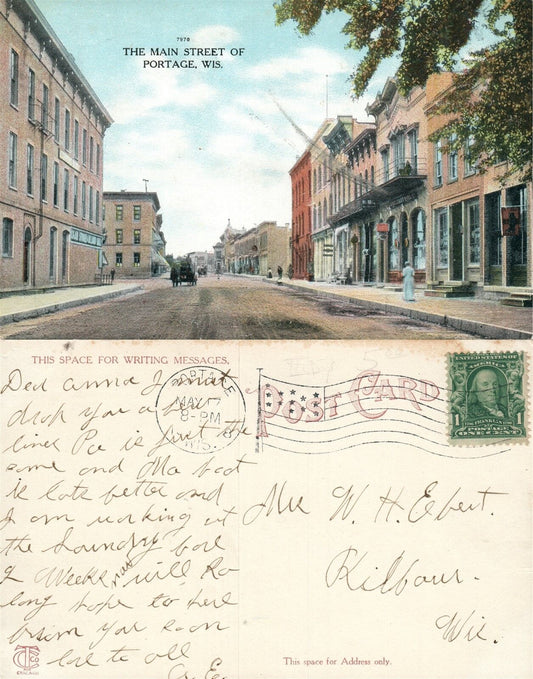 7970
THE MAIN STREET OF
PORTAGE, WIS.
THIS SPACE FOR WRITING MESSAGES,
POST CARD
PORTAGE
MAY 17
8-PM
WIS.
1 1
POSTAGE
ONE CENT
Dear Anna I must
drop you a few
lines Pa is just the
same and Ma
is lots better and
I am working at
the Laundry for
2 Weeks now will
long hope to here
from you soon
love to all
Mrs W. H. Ebert.
Kilbour.
Wis.
CHICAGO
This space for Address only.